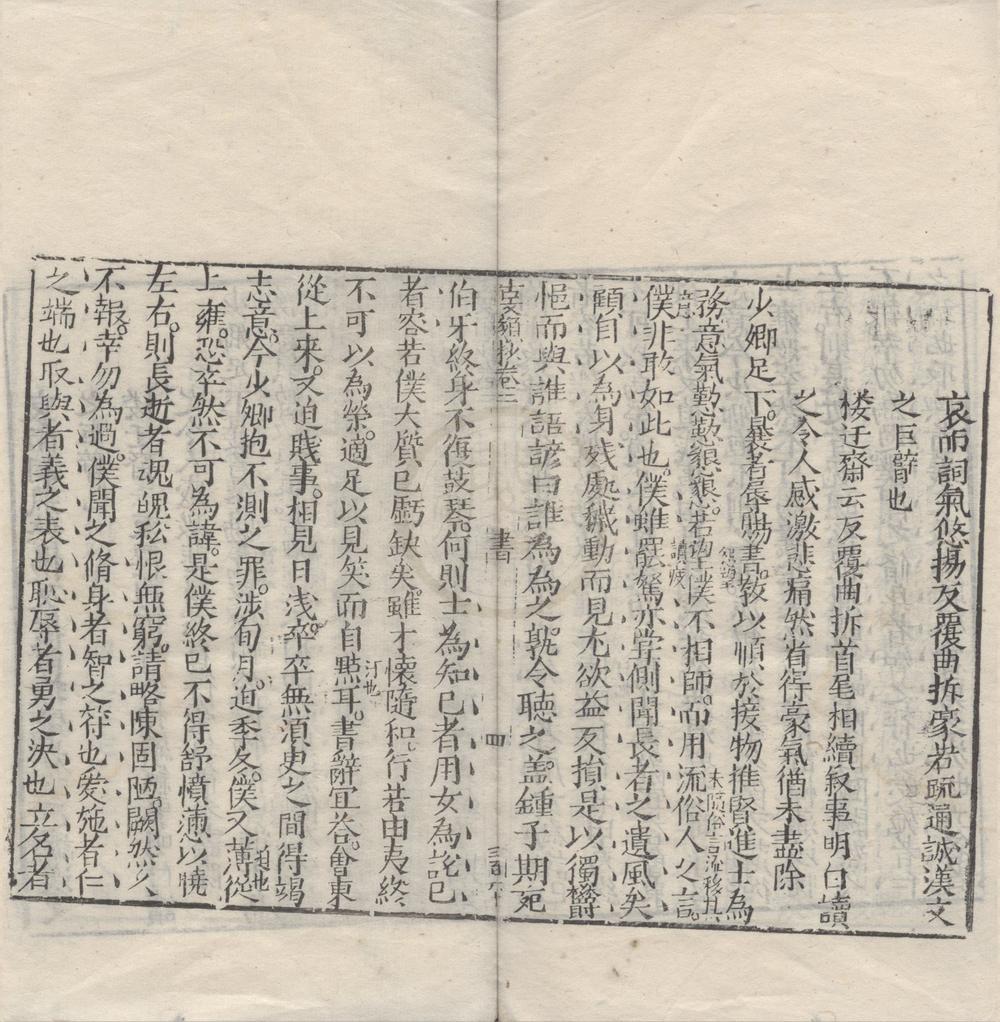 哀而詞氣悠揚反覆曲折豪若疏通誠漢文
之巨擘也
楼迂齋云反覆曲折首尾相續叙事明白讀
之令人感激悲痛然省得豪氣猶未盡除
少卿足下曩者辱賜書教以順於接物推賢進士為
務意氣懃懃懇懇若望僕不相師而用流俗人之言
僕非敢如此也僕雖罷駑亦嘗側聞長者之遺風矣
顧自以為身殘處穢動而見尤欲益反損是以獨欝
悒而與誰語諺曰誰為為之孰令聽之盖鍾子期死
書 四
伯牙終身不復鼓琴何則士為知已者用女為說已
者容若僕大質已虧缺矣雖才懷隨和行若由夷終
不可以為榮適足以見笑而自㸃耳書辭宜荅會東
從上來又迫賤事相見日浅卒卒無湏臾之間得竭
志意今少卿抱不測之罪涉旬月迫季冬僕又薄從
上雍恐卒然不可為諱是僕終已不得舒憤懣以曉
左右則長逝者魂魄私恨無窮請略陳固陋闕然久
不報幸勿為過僕聞之脩身者智之符也愛施者仁
之端也取與者義之表也恥辱者勇之决也立名者